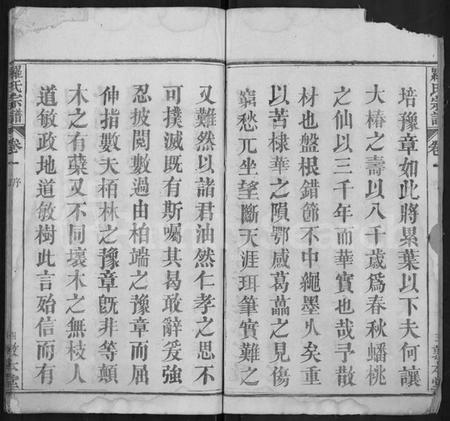 培豫章如此將累葉以下夫何讓
大椿之壽以八千歲爲春秋蟠桃
之仙以三千年而華實也哉予散
材也盤根錯節不中繩墨久矣重
以苦棣華之隕鄂咸葛藟之見傷
窮愁兀坐望斷天涯珥筆實難之
又難然以諸君油然仁孝之思不
可撲滅既有斯囑其曷敢辭爰強
忍披閱數過由柏端之豫章而屈
伸指數夫栢林之豫章旣非等顛
木之有蘖又不同壞木之無枝人
道敏政地道敏樹此言殆信而有
羅氏宗譜
卷一
序
敦本堂
羅氏宗譜
卷一